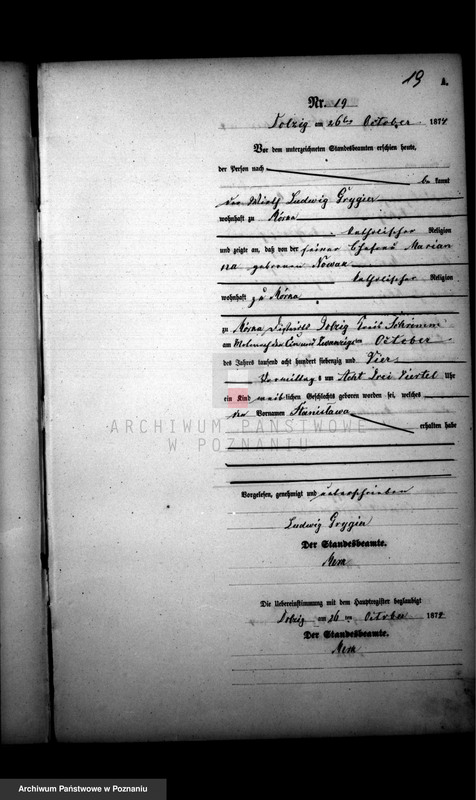 19
A.
Nr. 19
Dolzig am 26ten October 1874
Vor dem unterzeichneten Standesbeamten erschien heute,
der Person nach
bekannt
der Wirth Ludwig Grygier
wohnhaft zu Mórna
katholischer Religion
und zeigte an, daß von der seiner Ehefrau Marian
na geborenen Nowak
katholischer Religion
wohnhaft zu Mórna
zu Mórna Districts Dolzig Kreis Schrimm
am ein und zwanzigsten October
des Jahres tausend acht hundert siebenzig und Vier
Vormittags um Acht Drei Viertel Uhr
ein Kind weiblichen Geschlechts geboren worden sei, welches
die Vornamen Stanisława
erhalten habe
ARCHIWUM PAŃSTWOWE
W POZNANIU
Vorgelesen, genehmigt und unterschrieben
Ludwig Grygier
Der Standesbeamte.
Die Uebereinstimmung mit dem Hauptregister beglaubigt
Dolzig am 26ten October 1874
Der Standesbeamte.
Archiwum Państwowe w Poznaniu